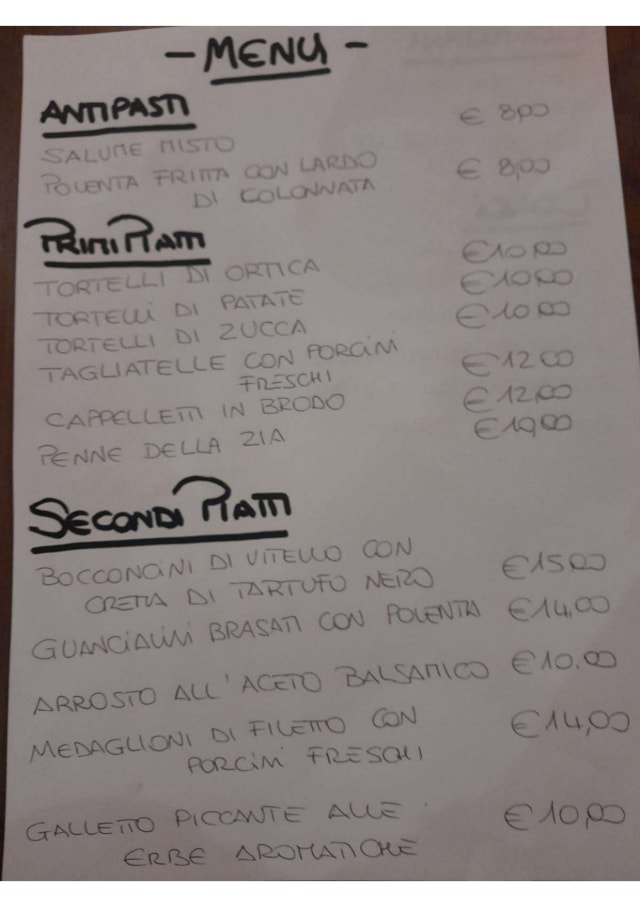 - MENU -
ANTIPASTI
SALUME MISTO € 8,00
POLENTA FRITTA CON LARDO € 8,00
DI COLONNATA
PRIMI PIATTI
TORTELLI DI ORTICA € 10,00
TORTELLI DI PATATE € 10,00
TORTELLI DI ZUCCA € 10,00
TAGLIATELLE CON PORCINI € 12,00
FRESCHI
CAPPELLETTI IN BRODO € 12,00
PENNE DELLA ZIA € 10,00
SECONDI PIATTI
BOCCONCINI DI VITELLO CON € 15,00
CREMA DI TARTUFO NERO
GUANCIALINI BRASATI CON POLENTA € 14,00
ARROSTO ALL'ACETO BALSAMICO € 10,00
MEDAGLIONI DI FILETTO CON € 14,00
PORCINI FRESCHI
GALLETTO PICCANTE ALLE € 10,00
ERBE AROMATICHE